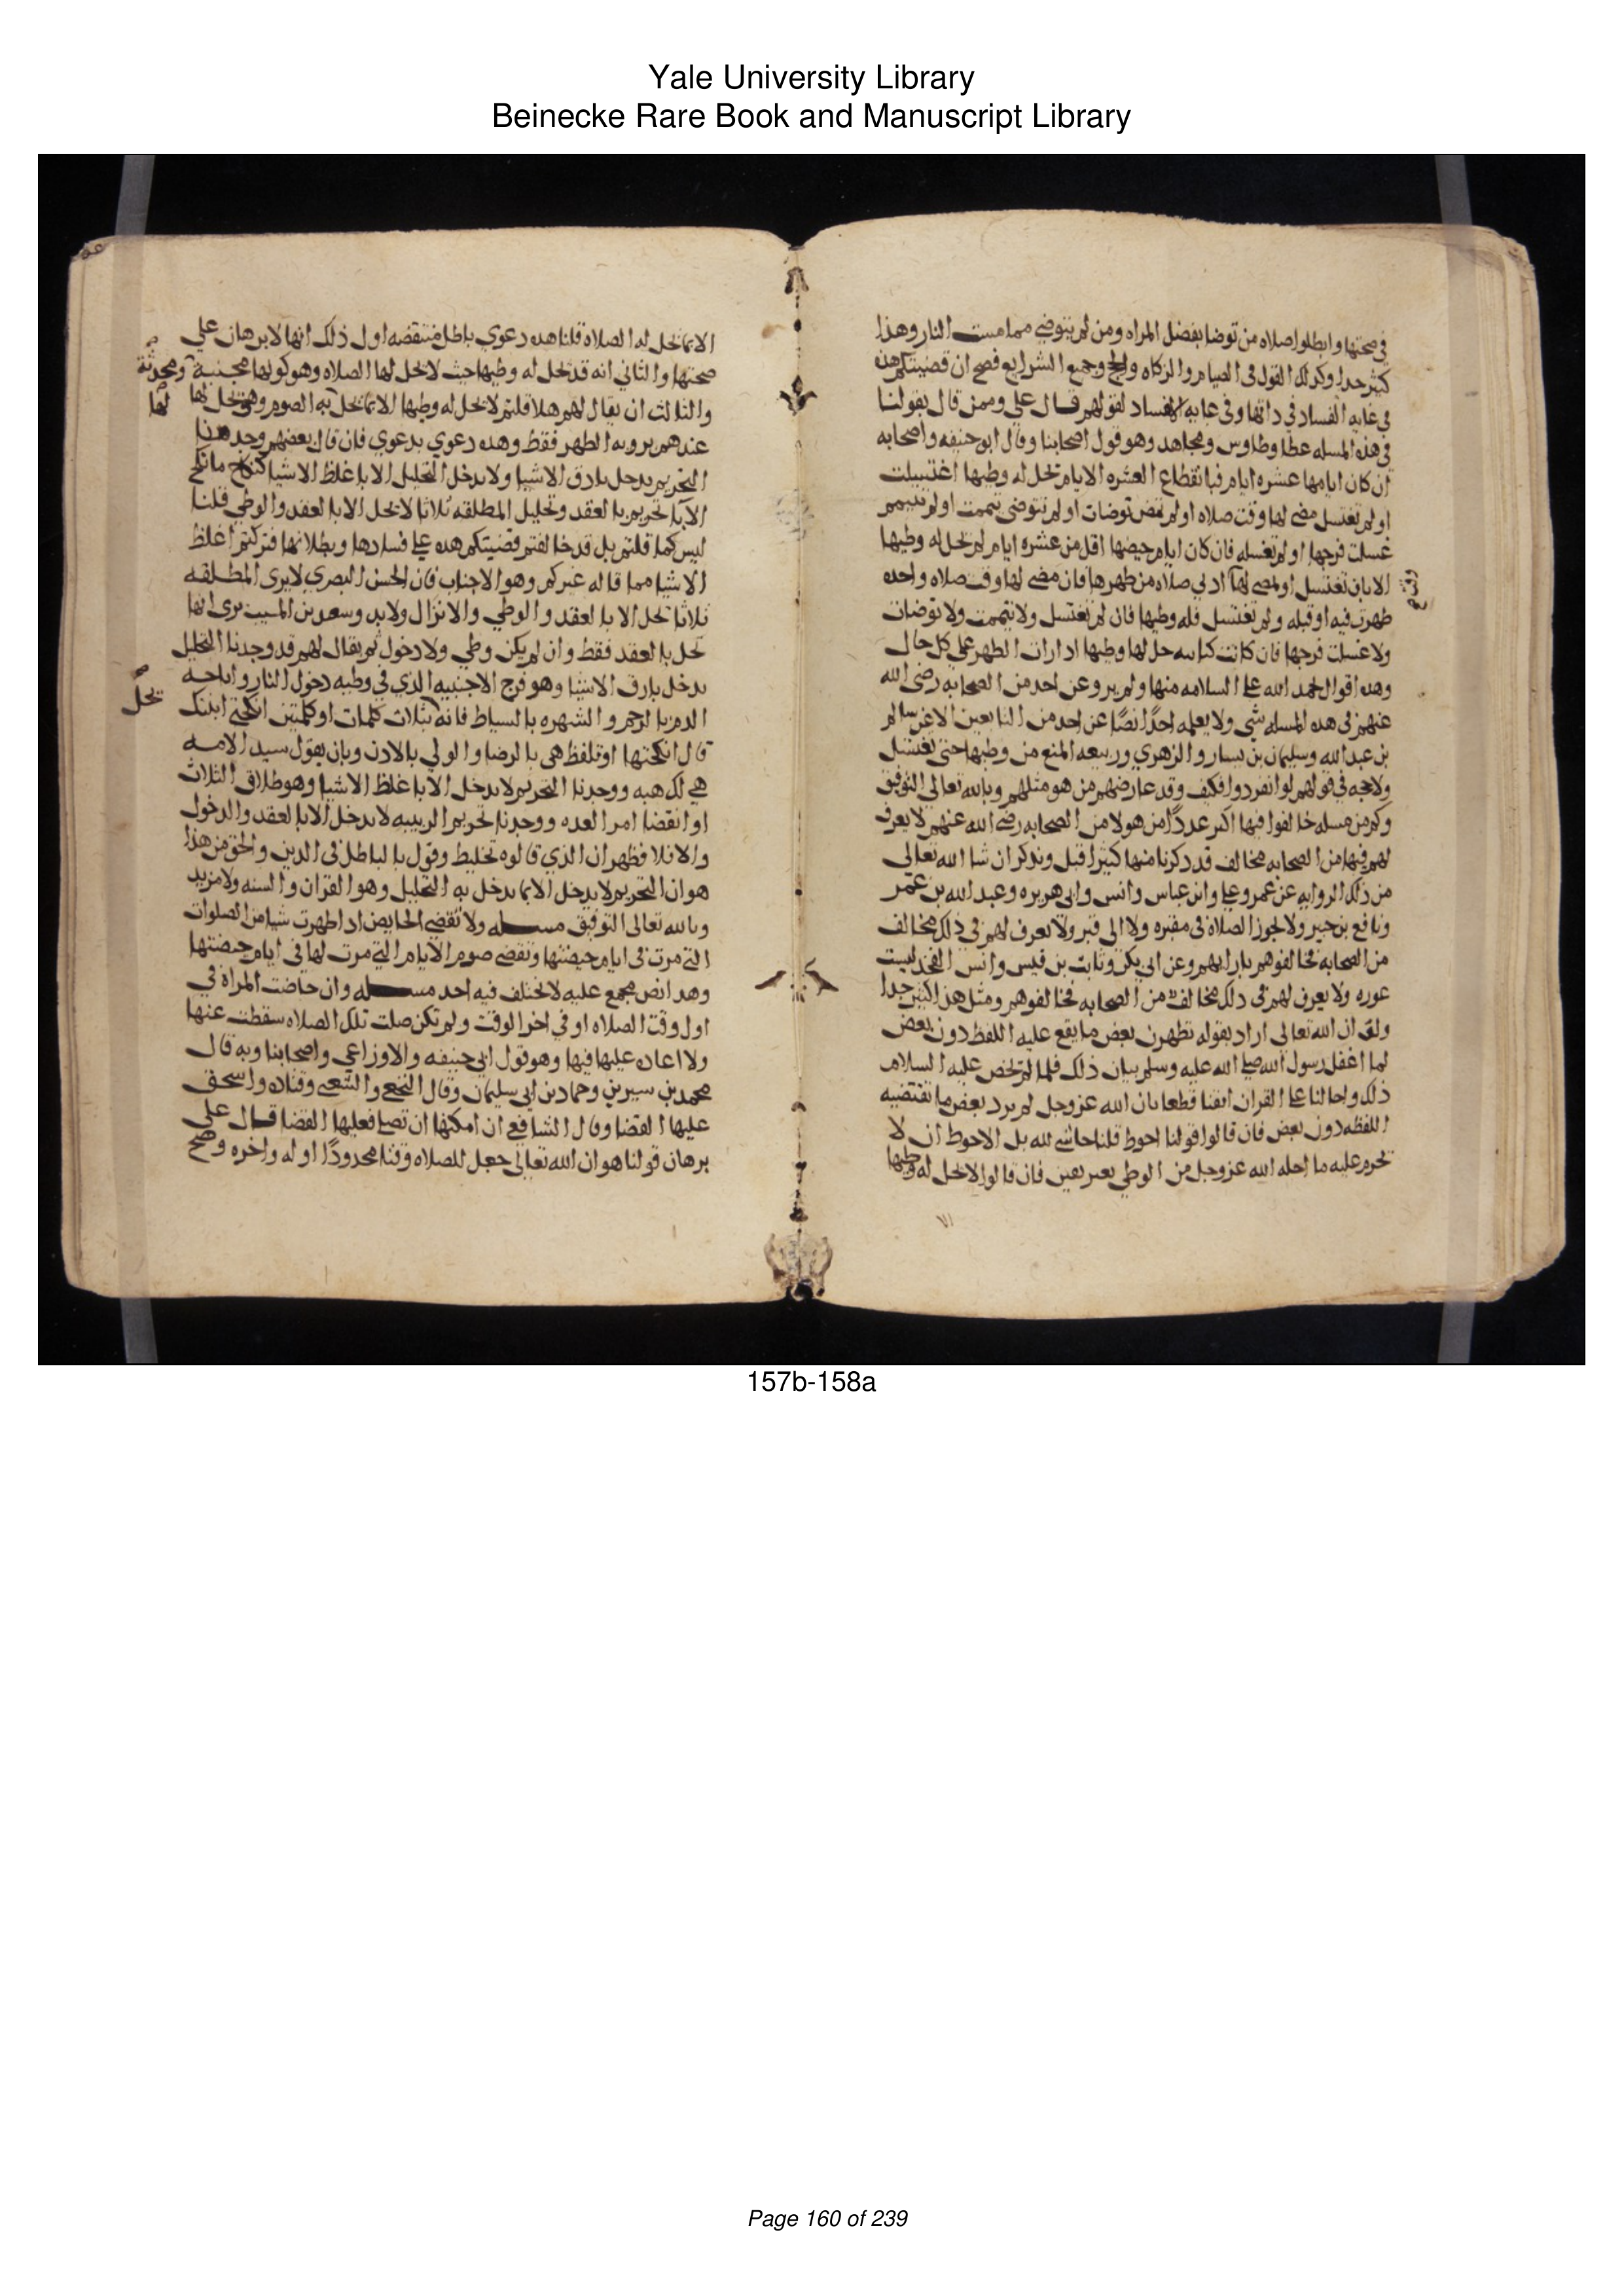 Yale University Library
Beinecke Rare Book and Manuscript Library
في صحتها وابطلوا صلاه من توضا بفضل المراه ومن لم يتوضى مما مست النار وهذا
كثير جدا وكذلك القول في الصيام والزكاه والحج وجميع الشرايع فصح ان قضيتكم هذه
في غايه الفساد في ذاتها وفي غايه الفساد لقولهم قال علي وممن قال بقولنا
في هذه المسله عطا وطاوس ومجاهد وهو قول اصحابنا وقال ابو حنيفه واصحابه
ان كان ايامها عشره ايام فبانقطاع العشره الايام تحل له وطيها اغتسلت
او لم تغتسل مضى لها وقت صلاه او لم يمض توضات او لم تتوضى تيممت او لم تتيمم
غسلت فرجها او لم تغسله فان كان ايام حيضها اقل من عشره ايام لم تحل له وطيها
الا بان تغتسل او يمضي لها ادني صلاه من طهرها فان مضى لها وقت صلاه واحده
طهرت فيه او قبله ولم تغتسل فله وطيها فان لم تغتسل ولا تيممت ولا توضات
ولا غسلت فرجها فان كانت كتابيه حل لها وطيها اذا رات الطهر على كل حال
وهذه اقوال الحمد الله علي السلامه منها ولم يرو عن احد من الصحابه رضى الله
عنهم في هذه المسله شي ولا يعلمه احدًا نصًا عن احد من التابعين الا عن سالم
بن عبد الله وسليمان بن يسار والزهري وربيعه المنع من وطيها حتى تغتسل
ولا حجه في قولهم لو انفردوا فكيف وقد عارضهم من هو مثلهم وبالله تعالى التوفيق
وكم من مسله خالفوا فيها اكثر عددًا من هولا من الصحابه رضي الله عنهم لا يعرف
لهم فيها من الصحابه مخالف قد ذكرنا منها كثيرا قبل ونذكر ان شا الله تعالى
من ذلك الروايه عن عمر وعلي وابن عباس وانس وابي هريره وعبد الله بن عمر
ونافع بن جبير ولا تجوز الصلاه في مقبره ولا الى قبر ولا يعرف لهم في ذلك مخالف
من الصحابه فخالفوهم بارايهم وعن ابي بكر وثابت بن قيس وانس الفخذ ليست
عوره ولا يعرف لهم في ذلك مخالف من الصحابه فخالفوهم ومثل هذا كثير جدا
ولو ان الله تعالى اراد بقوله تطهرن بعض ما يقع عليه اللفظ دون بعض
لما اغفل رسول الله صلي الله عليه وسلم بيان ذلك فلما لم يخص عليه السلام
ذلك واحالنا علي القران ايقنا قطعا بان الله عز وجل لم يرد بعض ما تقتضيه
اللفظه دون بعض فان قالوا قولنا احوط قلنا حاشي لله بل الاحوط ان لا
تحرم عليه ما احله الله عز وجل من الوطي بغير يقين فان قالوا لا تحل له وطيها
الا بما تحل له الصلاه قلنا هذه دعوي باطل منتقضه اول ذلك انها لا برهان علي
صحتها والثاني انه قد تحل له وطيها حيث لا تحل لها الصلاه وهو كونها مجنبة ومحدثة
والثالث ان يقال لهم هلا قلتم لا تحل له وطيها الا بما تحل به الصوم وهو يحل لها
عندهم برويه الطهر فقط وهذه دعوي بدعوي فان قال بعضهم وجدنا
التحريم يدخل بادق الاشيا ولا يدخل التحليل الا باغلظ الاشيا كنكاح ما نكح
الابا تحريم بالعقد وتحليل المطلقه ثلاثا لا تحل الا بالعقد والوطي قلنا
ليس كما قلتم بل قد خالفتم قضيتكم هذه علي فسادها وبطلانها فتركتم اغلظ
الاشيا مما قاله غيركم وهو الاجناب فان الحسن البصري لا يرى المطلقه
ثلاثا تحل الا بالعقد والوطي والانزال ولا بد وسعيد بن المسيب يرى انها
تحل بالعقد فقط وان لم يكن وطي ولا دخول ثم يقال لهم قد وجدنا التحليل
يدخل بارق الاشيا وهو فرج الاجنبيه الذي في وطيه دخول النار واباحه
الدم بالرجم والشهره بالسياط فانه بثلاث كلمات او كلمتين انكحني ابنتك
قال انكحتها او تلفظ هي بالرضا والولي بالاذن وبان يقول سيد الامه
هي لك هبه ووجدنا التحريم لا يدخل الا باغلظ الاشيا وهو طلاق الثلاث
او انقضا امر العده ووجدنا تحريم الربيبه لا يدخل الا بالعقد والدخول
والا فلا فظهر ان الذي قالوه تخليط وقول بالباطل في الدين والحق من هذا
هو ان التحريم لا يدخل الا بما يدخل به التحليل وهو القران والسنه ولا مزيد
وبالله تعالى التوفيق مسله ولا تقضي الحايض اذا طهرت شيا من الصلوات
التي مرت في ايام حيضتها وتقضى صوم الايام التي مرت لها في ايام حيضتها
وهذا نص مجمع عليه لا يختلف فيه احد مسله وان حاضت المراه في
اول وقت الصلاه او في اخر الوقت ولم تكن صلت تلك الصلاه سقطت عنها
ولا اعاده عليها فيها وهو قول ابي حنيفه والاوزاعي واصحابنا وبه قال
محمد بن سيرين وحماد بن ابي سليمان وقال النخعي والشعبي وقتاده واسحق
عليها القضا وقال الشافعي ان امكنها ان تصلي فعليها القضا قال علي
برهان قولنا هو ان الله تعالى جعل للصلاه وقتا محدودًا اوله واخره وصح
تحل
لها
157b-158a
Page 160 of 239